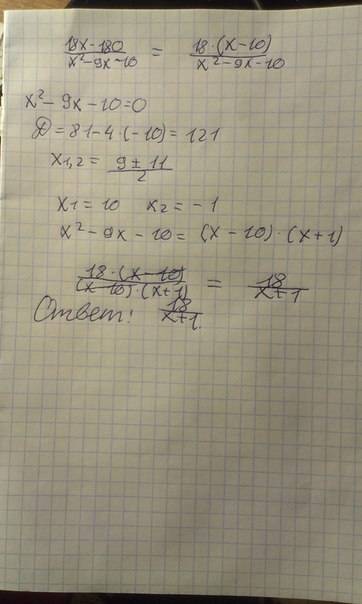 (18x-180)/(x²-9x-10) = (18·(x-10))/(x²-9x-10)
x²-9x-10=0
D=81-4·(-10)=121
x1,2 = (9±11)/2
x1=10 x2=-1
x²-9x-10=(x-10)·(x+1)
(18·(x-10))/((x-10)·(x+1)) = 18/(x+1)
Ответ: 18/(x+1).